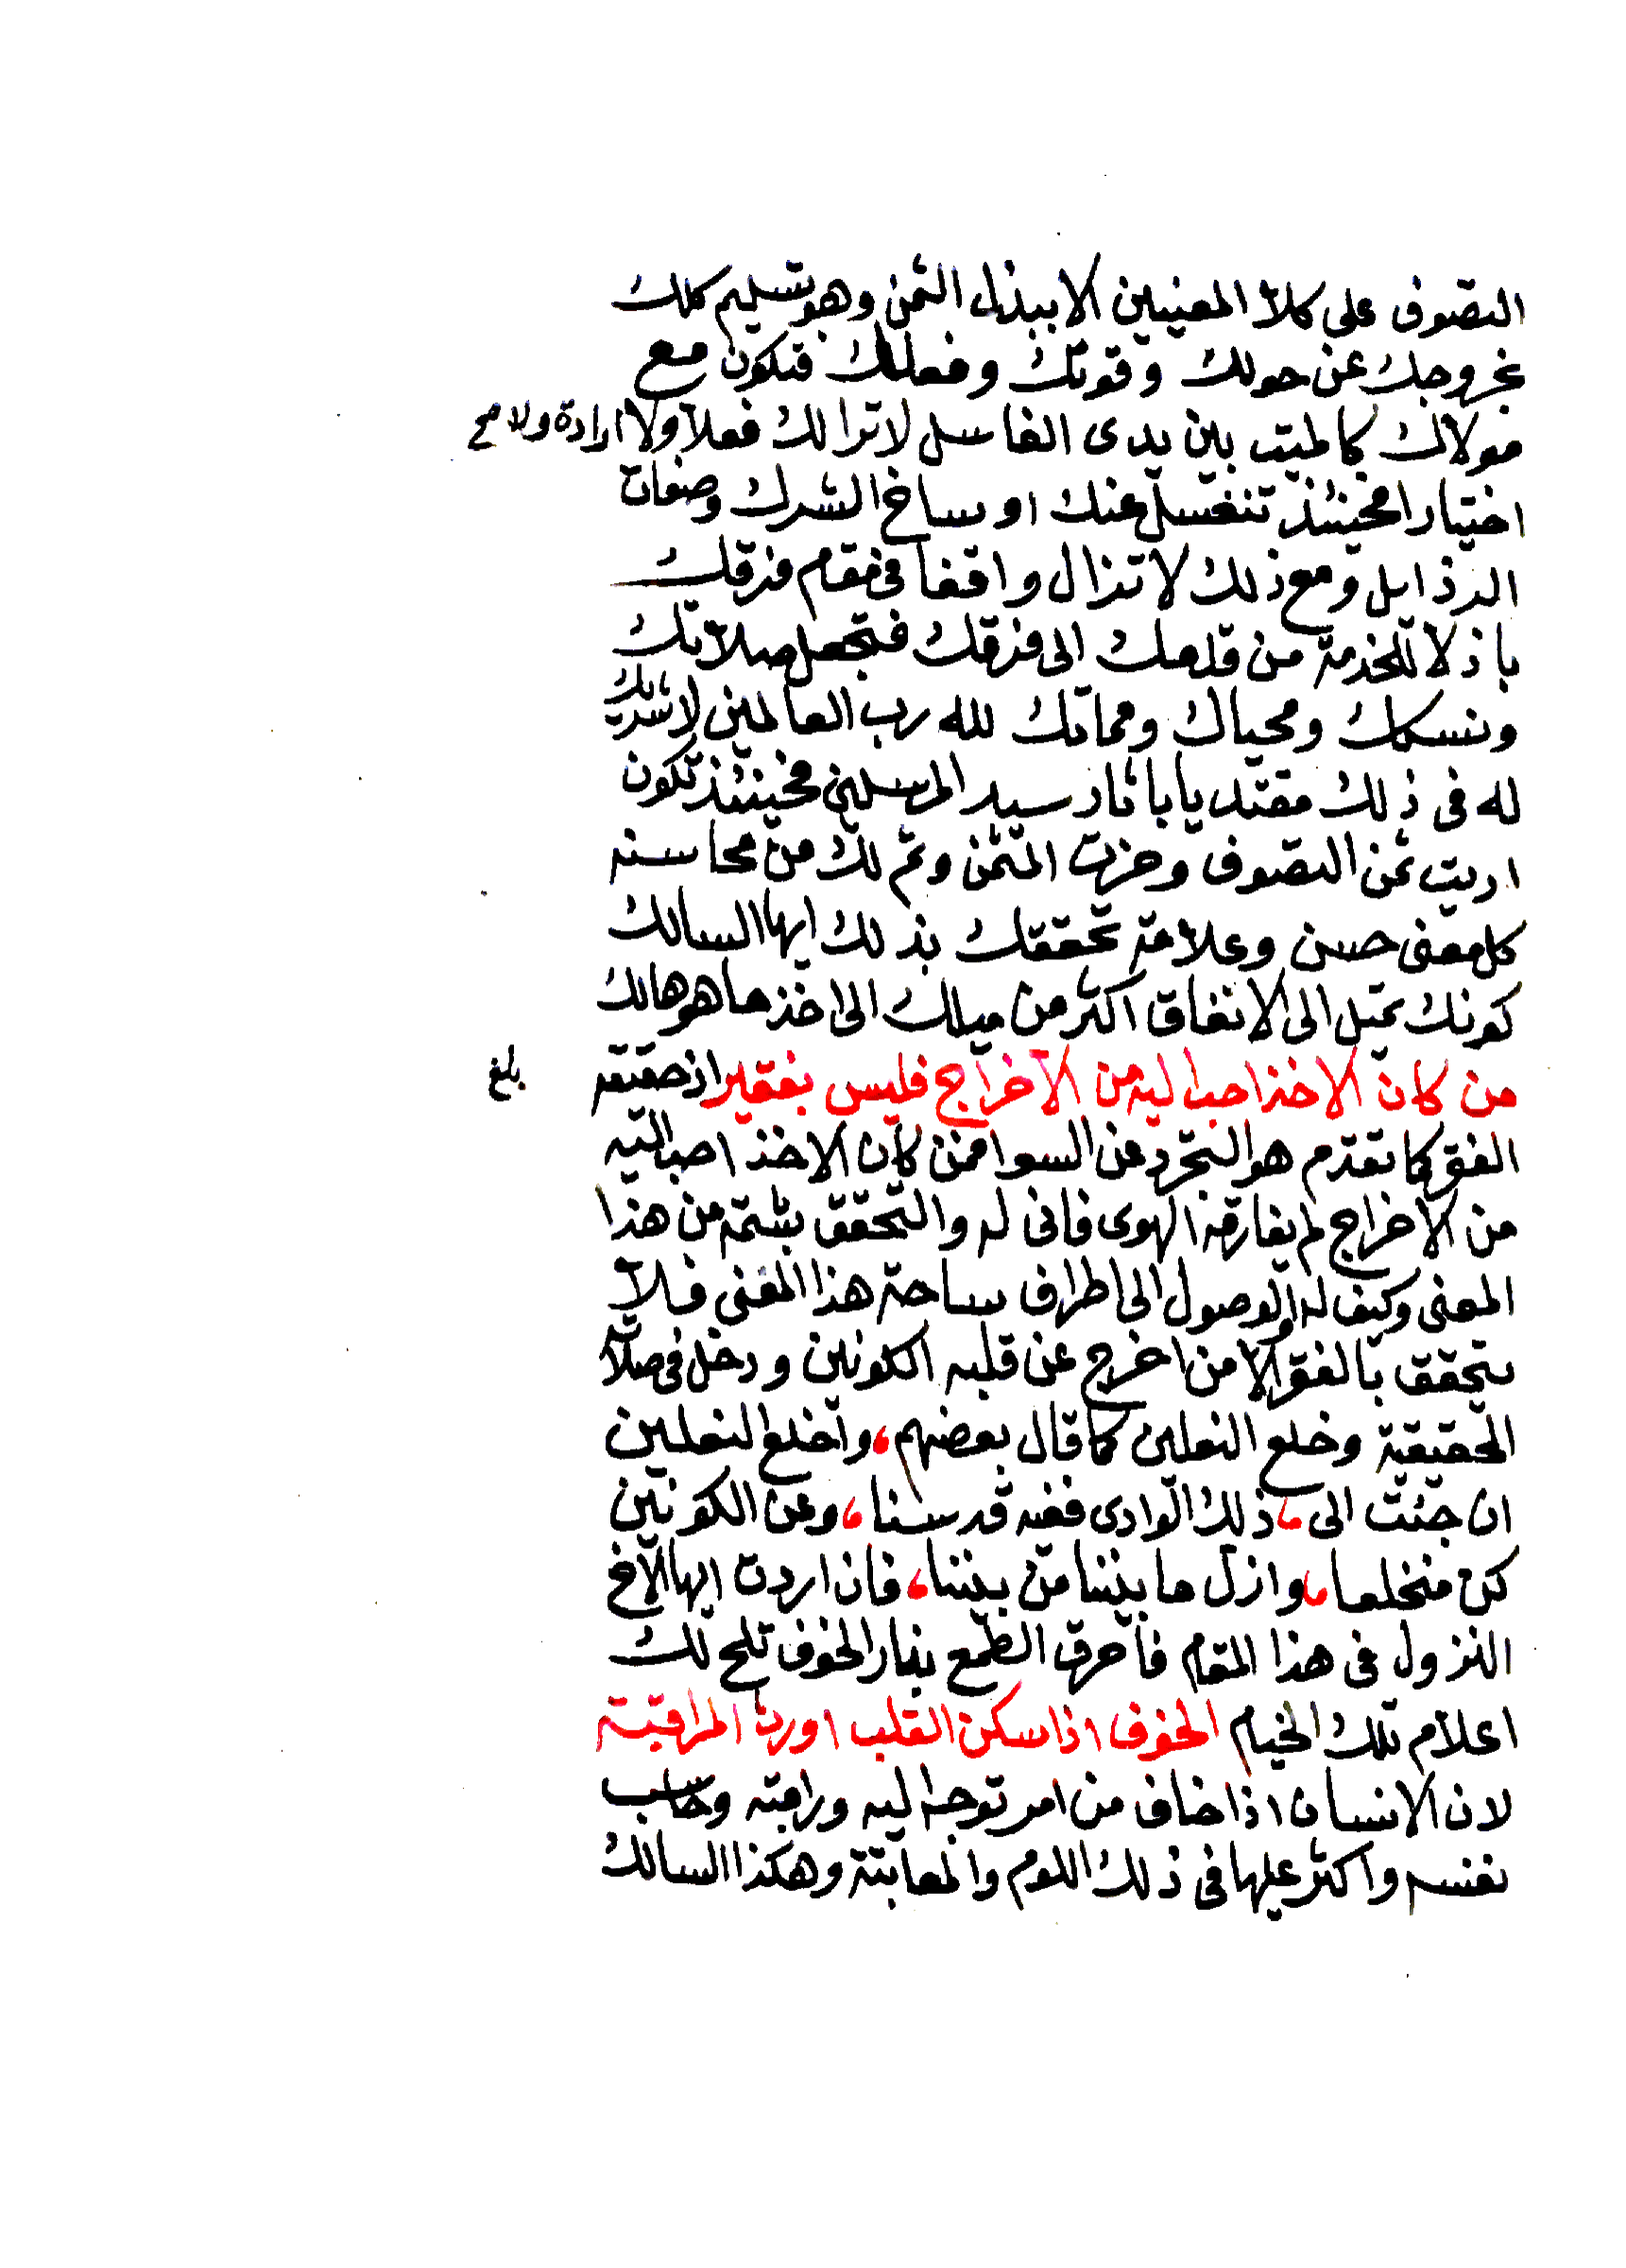 التصوف على كلا المعنيين الا ببذل الثمن وهو تسليم كلك
بخروجك عن حولك وقوتك وفعلك فتكون مع
مولاك كالميت بين يدى الغاسل لا ترا لك فعلا ولا ارادة ولا مع
اختيارا فحينئذ تنغسل عنك اوساخ الشرك وصفات
الرذايل ومع ذلك لا تزال واقفا فى مقام فرقك
باذلا للخدمة من قدمك الى فرقك فتجعل صلاتك
ونسكك ومحياك ومماتك لله رب العالمين لا شريك
له فى ذلك مقتديا باثار سيد المرسلين فحينئذ تكون
اديت ثمن التصوف وحزت المثمن وتم لك من محاسنه
كل معنى حسن وعلامة تحققك بذلك ايها السالك
كونك تميل الى الانفاق اكثر من ميلك الى اخذ ما هو هالك
من كان الاخذ احب اليه من الاخراج فليس بفقير اذ حقيقة
بلغ
الفقر كما تقدم هو التجرد عن السوا فمن كان الاخذ احب اليه
من الاخراج لم يفارقه الهوى فانى له والتحقق بشمة من هذا
المعنى وكيف له الوصول الى اطراف ساحة هذا المغنى فلا
يتحقق بالفقر الا من اخرج عن قلبه الكونين ودخل فى صلاته
الحقيقية وخلع النعلين كما قال بعضهم، واخلع النعلين
ان جئت الى، ذلك الوادى ففيه قدسنا، وعن الكونين
كن منخلعا، وازل ما بيننا من بيننا، فان اردت ايها الاخ
النزول فى هذا المقام فاحرق الطمع بنار الخوف تلح لك
اعلام تلك الخيام الخوف اذا سكن القلب اورث المراقبة
لان الانسان اذا خاف من امر توجه اليه وراقبه وحاسب
نفسه واكثر عليها فى ذلك اللوم والمعاتبة وهكذا السالك